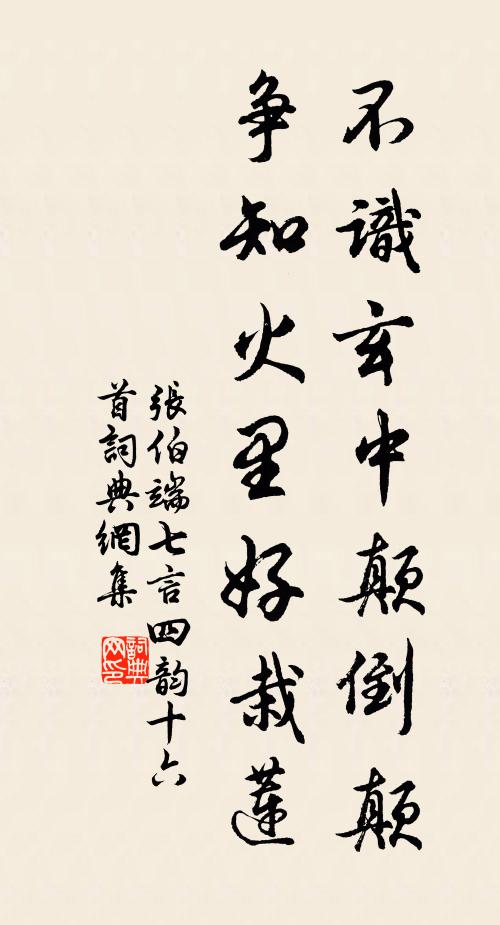 不識玄中顛倒顛
争知火里好栽蓮
張伯端七言四韵十六
首詞典網集
詞典网印